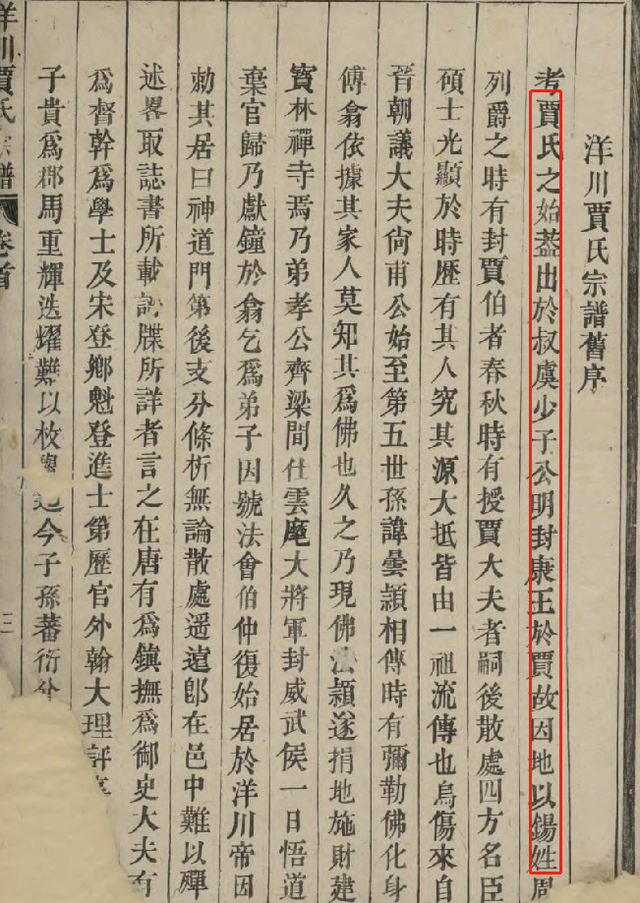 洋川賈氏宗譜舊序
考賈氏之始葢出於叔虞少子公明封康王於賈故因地以錫姓周
列爵之時有封賈伯者春秋時有授賈大夫者嗣後散處四方名臣
碩士光顯於時歷有其人究其源大抵皆由一祖流傳也烏傷來自
晉朝議大夫尙甫公始至第五世孫諱曇頴相傳時有彌勒佛化身
傅翕依據其家人莫知其爲佛也久之乃現佛法頴遂捐地施財建
寳林禪寺焉乃弟孝公齊梁間仕雲麾大將軍封威武侯一日悟道
棄官歸乃獻鐘於翕乞爲弟子因號法會伯仲復始居於洋川帝因
勅其居曰神道門第後支分條析無論散處遥遠郎在邑中難以殫
述畧取誌書所載牒所詳者言之在唐有爲鎭撫爲御史大夫有
爲督幹爲學士及宋登鄉魁登進士第歷官外翰大理評
子貴爲郡馬重輝迭耀難以枚今子孫蕃衍
洋川賈氏宗譜
卷首
三